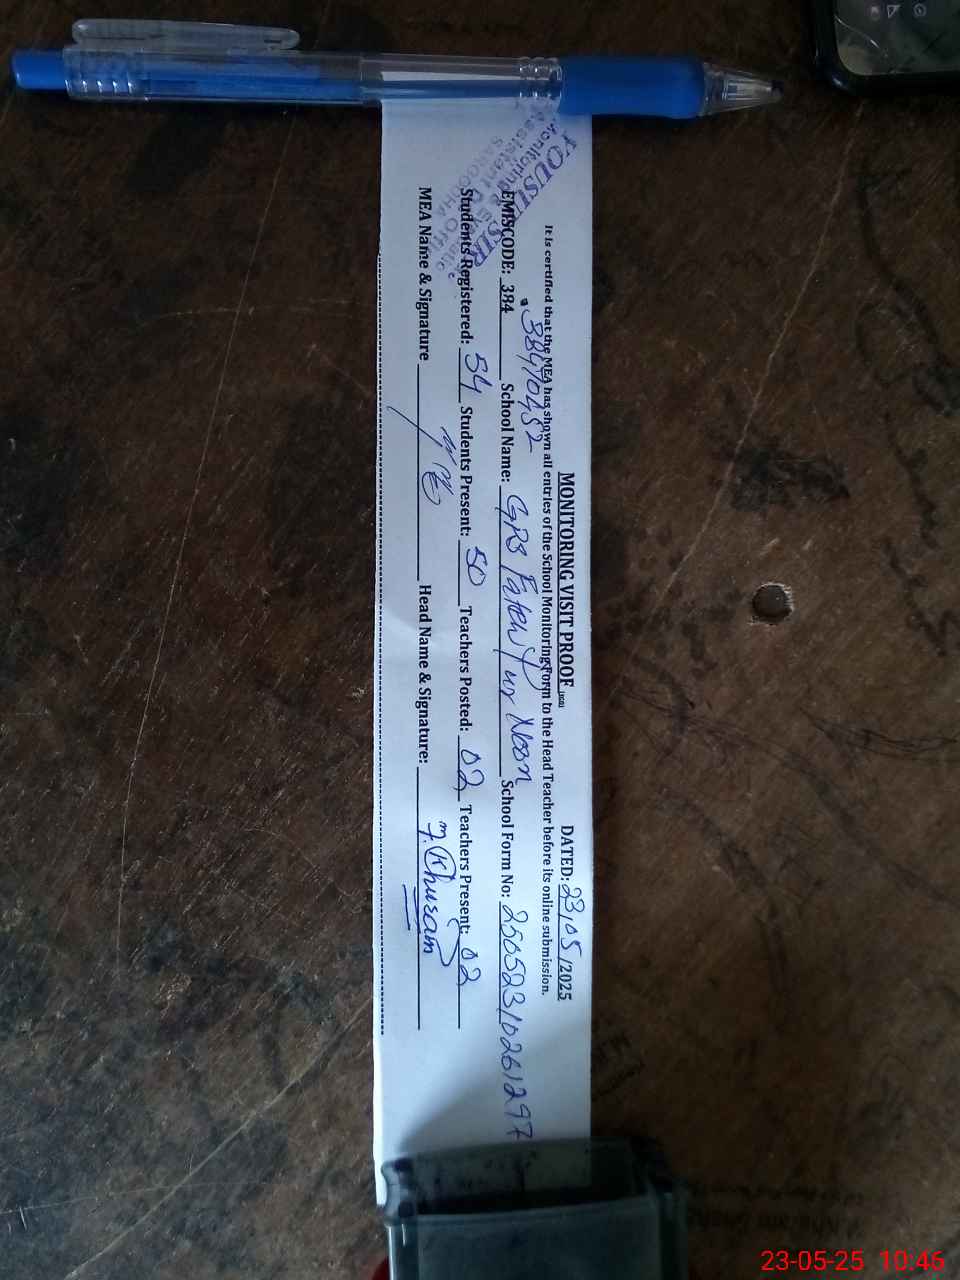 MONITORING VISIT PROOF DATED: 23/05/2025
It is certified that the MEA has shown all entries of the School Monitoring Form to the Head Teacher before its online submission.
38470452
EMISCODE: 384 School Name: GPS Fateh Pur Noon School Form No: 25052310261297
Students Registered: 54 Students Present: 50 Teachers Posted: 02 Teachers Present: 02
MEA Name & Signature Head Name & Signature: M. Khuram
Monitoring &
Assistant
SARGODHA
23-05-25 10:46